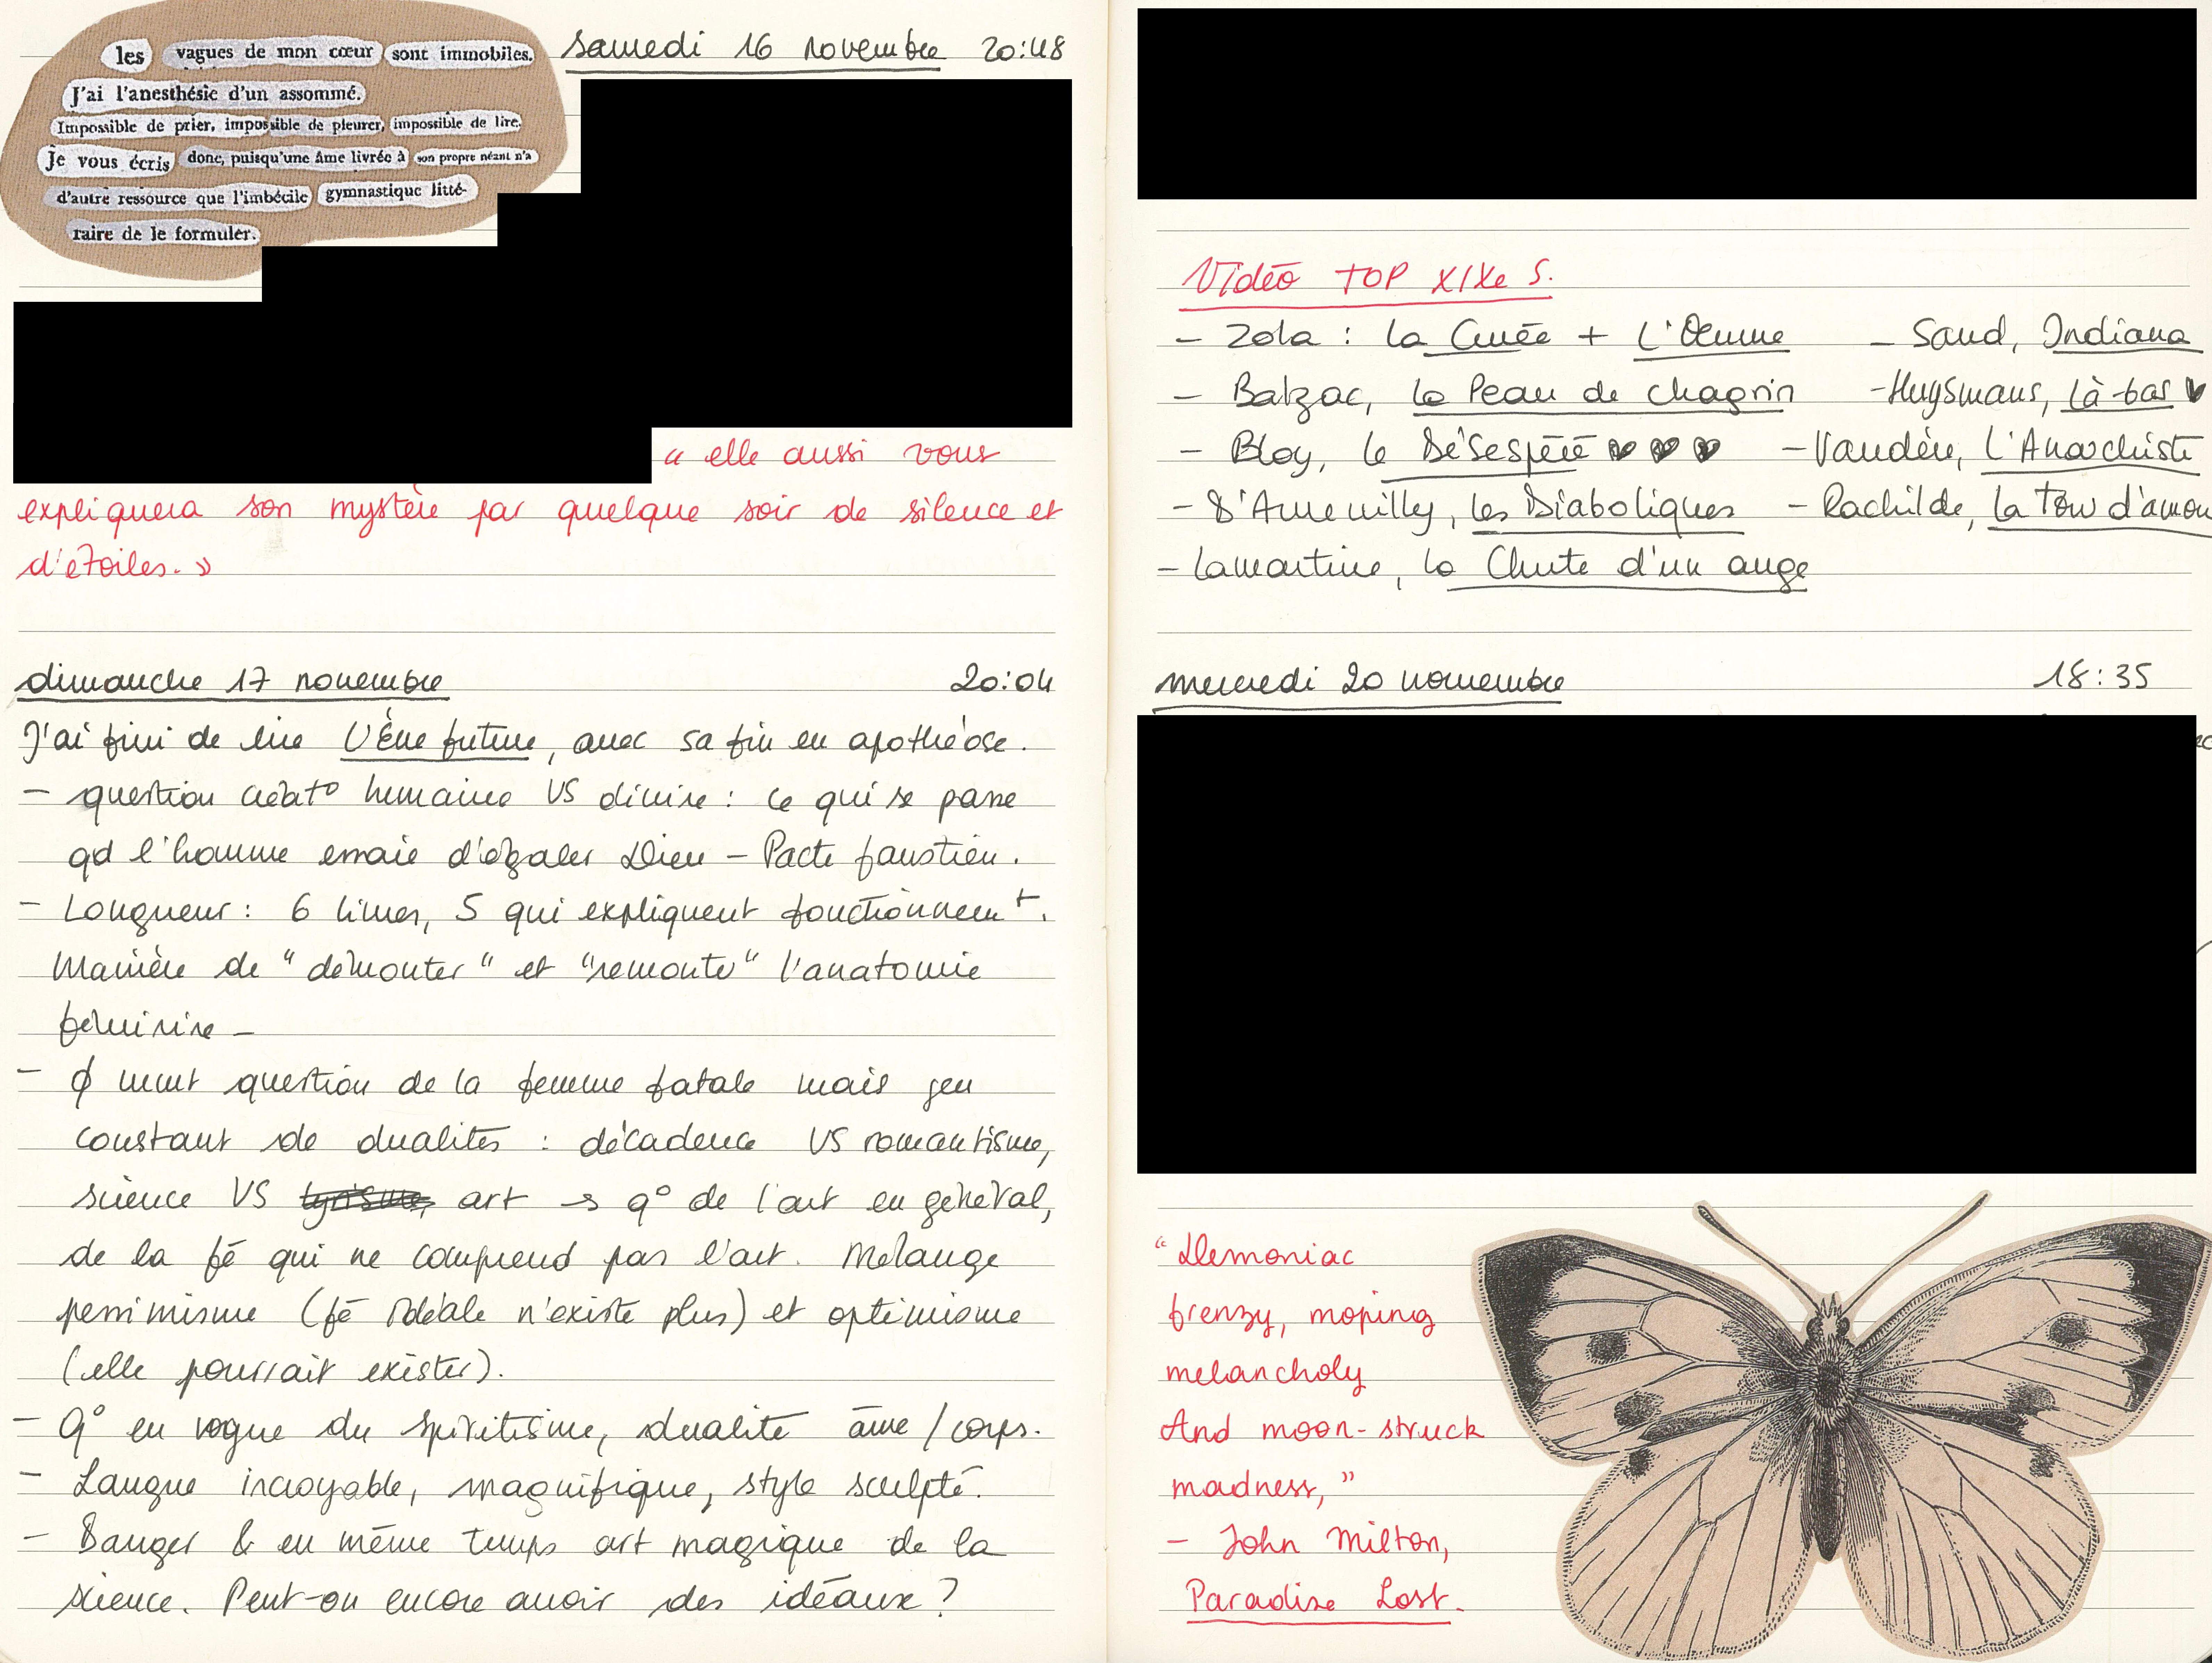 les vagues de mon cœur sont immobiles.
J'ai l'anesthésie d'un assommé.
Impossible de prier, impossible de pleurer, impossible de lire.
Je vous écris donc, puisqu'une âme livrée à son propre néant n'a
d'autre ressource que l'imbécile gymnastique litté-
raire de le formuler.
samedi 16 novembre 20:48
« elle aussi vous
expliquera son mystère par quelque soir de silence et
d'étoiles. »
dimanche 17 novembre 20:04
J'ai fini de lire L'Ève future, avec sa fin en apothéose.
- question créat° humaine VS divine : ce qui se passe
qd l'homme essaie d'égaler Dieu - Pacte faustien.
- Longueur : 6 livres, 5 qui expliquent fonctionnemt.
Manière de "démonter" et "remonter" l'anatomie
féminine -
- ϕ mmt question de la femme fatale mais jeu
constant de dualités : décadence VS romantisme,
science VS lyrisme, art → q° de l'art en général,
de la fê qui ne comprend pas l'art. Mélange
pessimisme (fê idéale n'existe plus) et optimisme
(elle pourrait exister).
- Q° en vogue du spiritisme, dualité âme / corps.
- Langue incroyable, magnifique, style sculpté.
- Danger & en même temps art magique de la
science. Peut-on encore avoir des idéaux ?
Vidéo TOP XIXe S.
- Zola : La Curée + L'Œuvre - Sand, Indiana
- Balzac, La Peau de chagrin - Huysmans, Là-bas ♥
- Bloy, Le Désespéré ♥ ♥ ♥ - Vaudère, L'Anarchiste
- D'Aurevilly, Les Diaboliques - Rachilde, La Tour d'amou
- Lamartine, La Chute d'un ange
mercredi 20 novembre 18:35
"Demoniac
frenzy, moping
melancholy
And moon-struck
madness,"
- John Milton,
Paradise Lost.